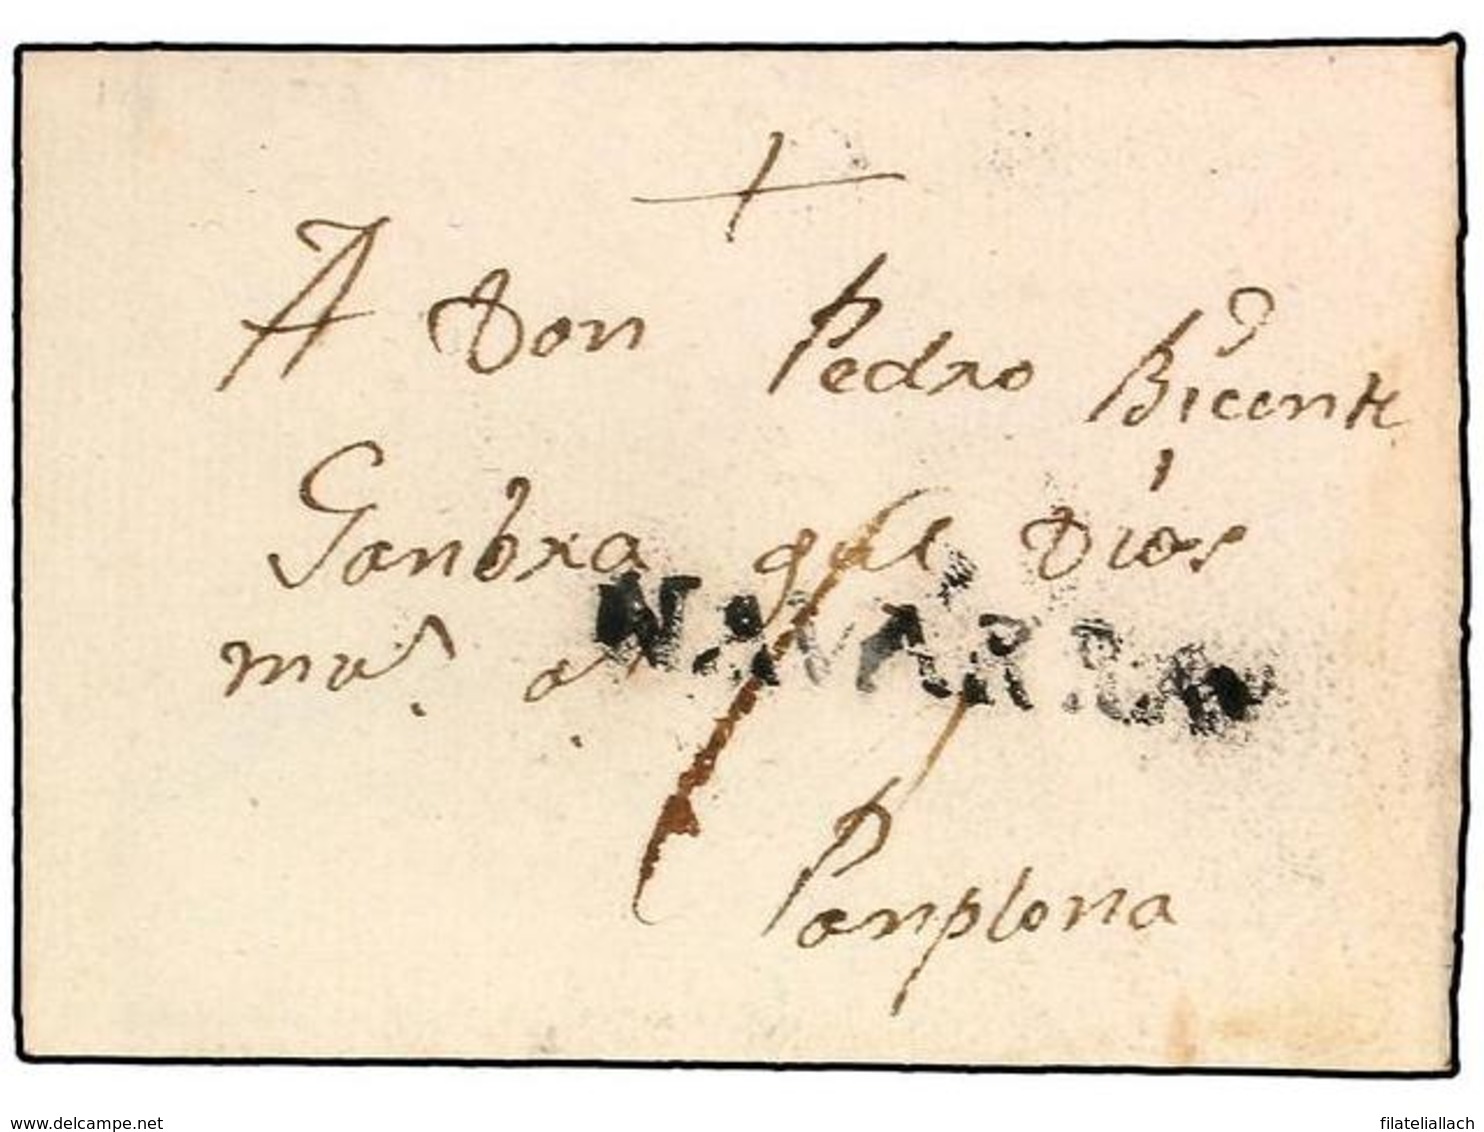 +
A Don Pedro Bicente
Ganbra que Dios
mu.s a.s
NAVARRA
Panplona
www.delcampe.net
filateliallach